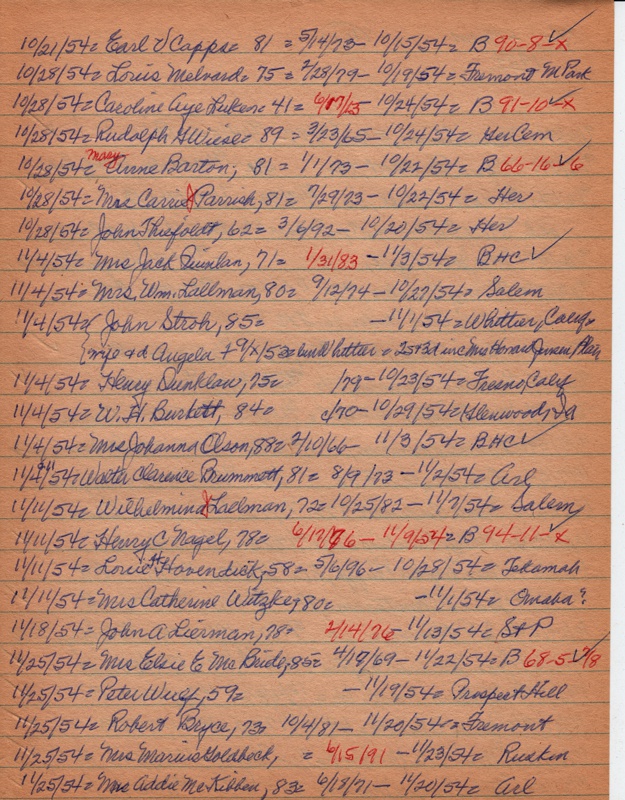 10/21/54= Earl V Capps= 81 = 5/14/73- 10/15/54= B 90-8-x
10/28/54= Louis Melvard= 75= 2/28/79- 10/19/54= Fremont M Park
10/28/54= Caroline Aye Luken= 41= 6/17/13 10/24/54= B 91-10-x
10/28/54= Rudolph H Wiese= 89= 3/23/65- 10/24/54= Her Cem
10/28/54= Mary Anne Barton, 81= 1/1/73- 10/22/54= B 66-16-6
10/28/54= Mrs Carrie Parrish, 81= 7/29/73- 10/22/54= Her
10/28/54= John Thiefoldt, 62= 3/6/92- 10/20/54= Her
11/4/54= Mrs Jack Quinlan, 71= 1/31/83 - 11/3/54= BHC
11/4/54= Mrs. Wm. Lallman, 80= 9/12/74- 10/27/54= Salem
11/4/54= John Stroh, 85= -11/1/54= Whittier, Calif=
{ wife & d Angela + 9/x/53= bur Whittier = 25+3d inc Mrs Howard Jensen/Plain
11/4/54= Henry Dunklau, 75= /79- 10/23/54= Fresno, Calif
11/4/54= W.H. Burkett, 84= c/70- 10/29/54= Glenwood, Ia
11/4/54= Mrs Johanna Olson, 88= 2/10/66- 11/3/54= BHC
11/4/54= Walter Clarence Brummett, 81= 8/9/73 -11/2/54= Arl
11/11/54= Wilhelmina Ladman, 72= 10/25/82- 11/7/54= Salem
11/11/54= Henry C Nagel, 78= 6/17/76- 11/9/54= B 94-11-x
11/11/54= Louie H Havendick, 58= 5/6/96- 10/28/54= Tekamah
11/11/54= Mrs Catherine Witzke, 80= -11/1/54= Omaha?
11/18/54= John A Lierman, 78= 2/14/76- 11/13/54= StP
11/25/54= Mrs Elsie E McBride, 85= 4/17/69- 11/22/54= B 68-5-7/8
11/25/54= Peter Wulf, 59= -11/19/54= Prospect Hill
11/25/54= Robert Bryce, 73= 10/4/81- 11/20/54= Fremont
11/25/54= Mrs Marius Goldbeck, = 6/15/91 -11/23/54= Ruskin
11/25/54= Mrs Addie McKibben, 83= 6/18/71- 11/20/54= Arl